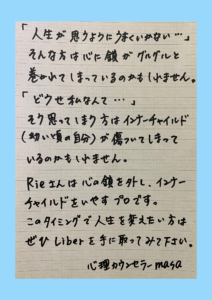 「人生が思うようにうまくいかない…」
そんな方は心に鎖がグルグルと
巻かれてしまっているのかもしれません。
「どうせ私なんて…」
そう思ってしまう方はインナーチャイルド
(幼い頃の自分)が傷ついてしまって
いるのかもしれません。
Rieさんは心の鎖を外し、インナー
チャイルドをいやすプロです。
このタイミングで人生を変えたい方は
ぜひLiberを手に取ってみて下さい。
心理カウンセラーmasa